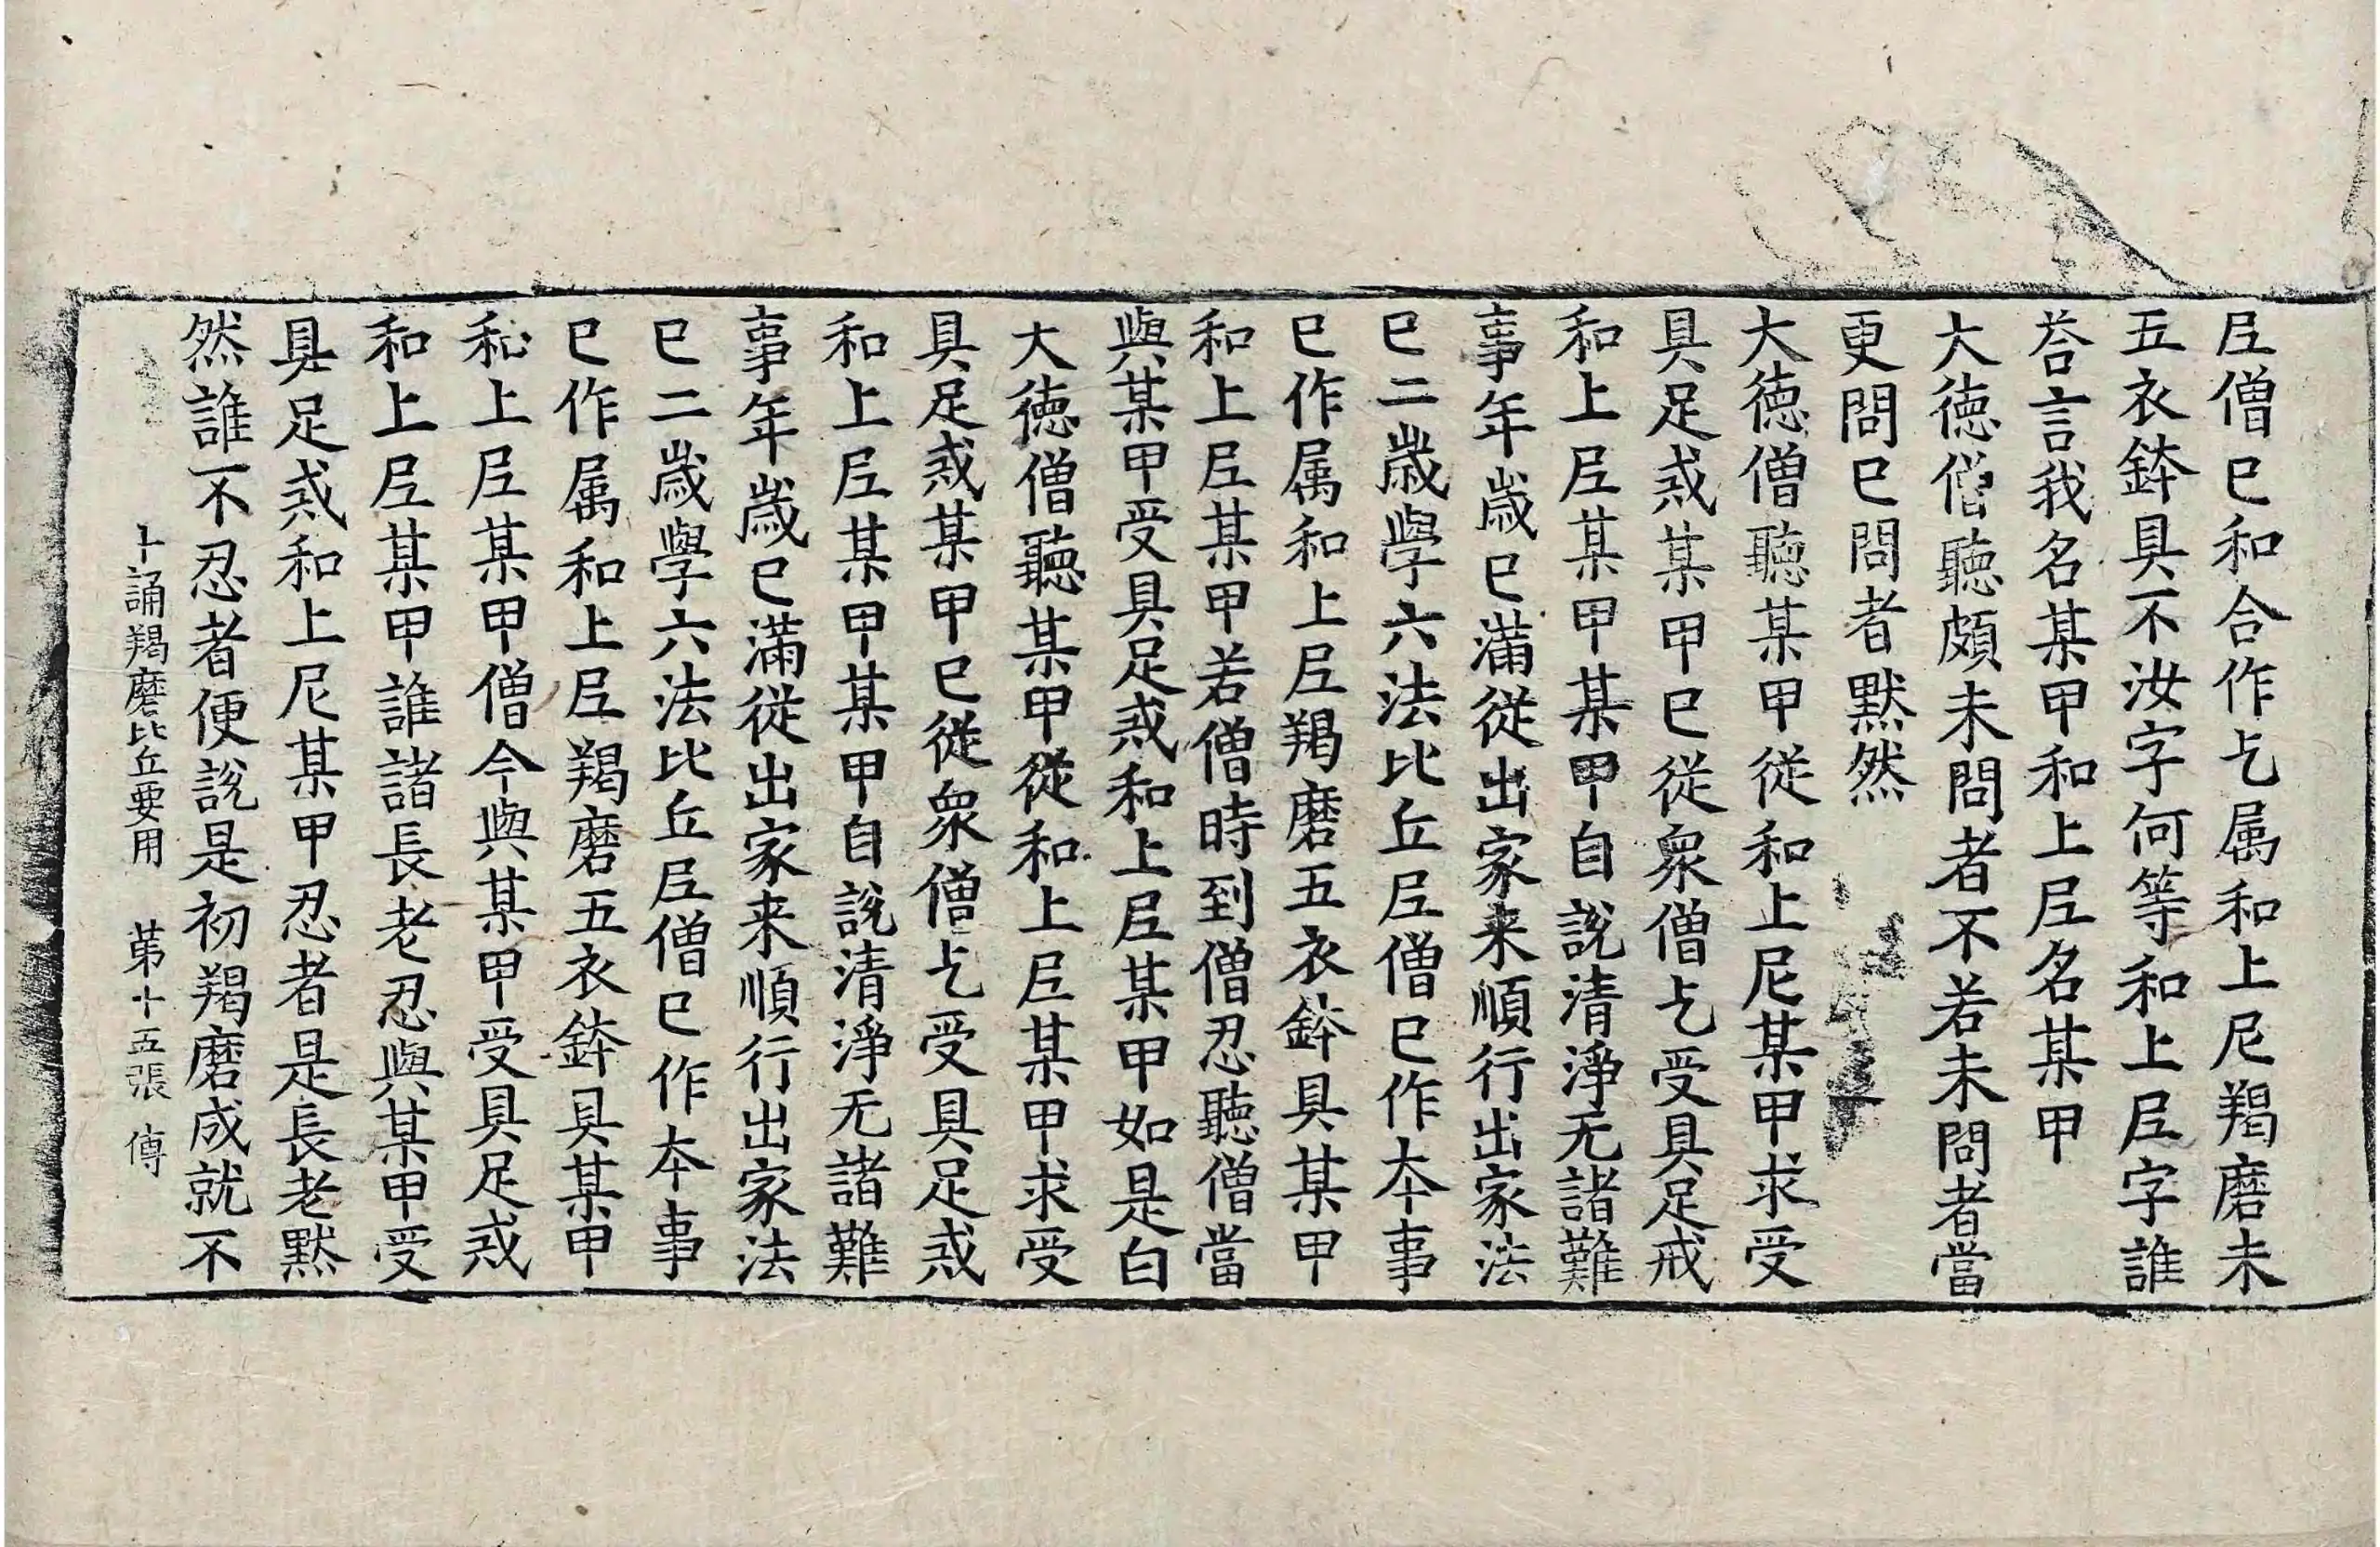 尼僧已和合作乞属和上尼羯磨未
五衣鉢具不汝字何等和上尼字誰
荅言我名某甲和上尼名某甲
大徳僧聽頗未問者不若未問者當
更問已問者默然
大徳僧聽某甲從和上尼某甲求受
具足戒某甲已從衆僧乞受具足戒
和上尼某甲某甲自說清淨无諸難
事年歲已滿從出家来順行出家法
已二歲學六法比丘尼僧已作本事
已作属和上尼羯磨五衣鉢具某甲
和上尼某甲若僧時到僧忍聽僧當
與某甲受具足戒和上尼某甲如是白
大徳僧聽某甲從和上尼某甲求受
具足戒某甲已從衆僧乞受具足戒
和上尼某甲某甲自說清淨无諸難
事年歲已滿從出家来順行出家法
已二歲學六法比丘尼僧已作本事
已作属和上尼羯磨五衣鉢具某甲
和上尼某甲僧今與某甲受具足戒
和上尼某甲誰諸長老忍與某甲受
具足戒和上尼某甲忍者是長老默
然誰不忍者便說是初羯磨成就不
十誦羯磨比丘要用 苐十五張 傅